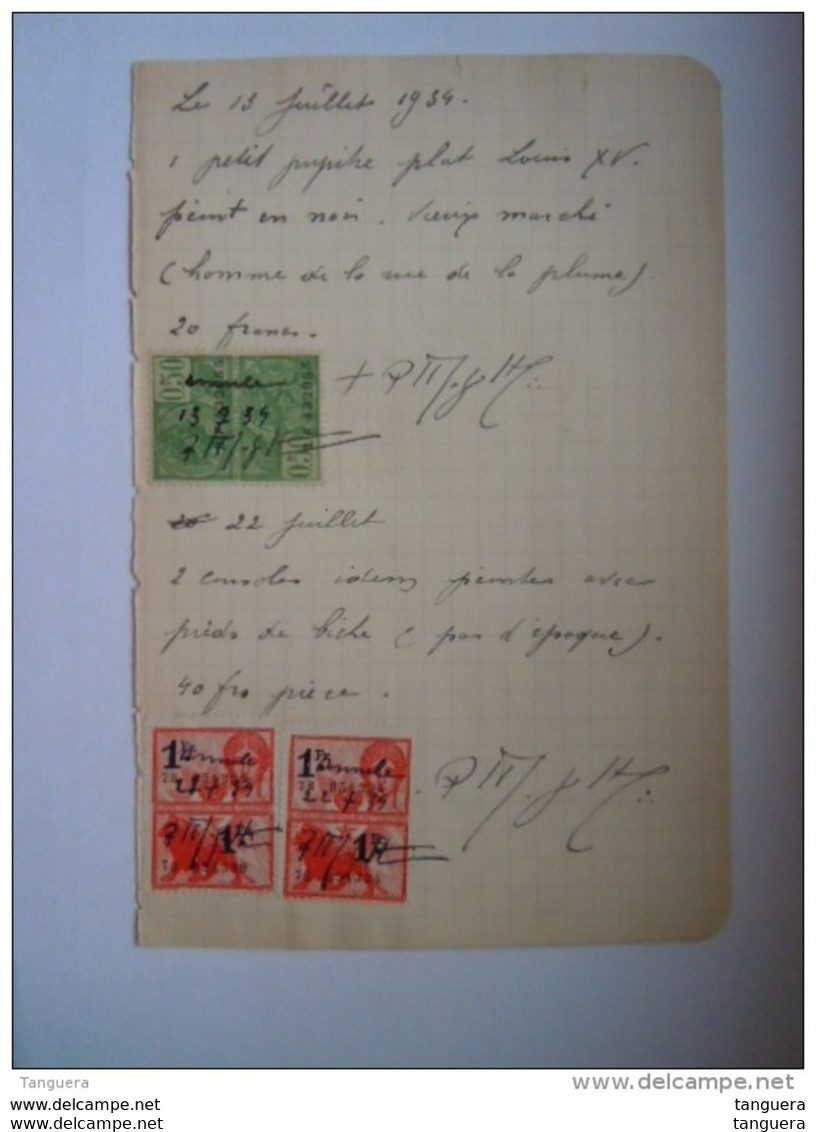 Le 13 Juillet 1934.
1 petit pupitre plat Louis XV.
peint en noir. Vieux marché
(homme de la rue de la plume)
20 francs.
0.50
annulé
13 7 34
0.50
22 juillet
2 consoles idem peintes avec
pieds de biche (pas d'époque).
40 frs pièce.
1 FR
annulé
22 7 34
1 FR
1 FR
annulé
22 7 34
1 FR
Tanguera
www.delcampe.net
www.delcampe.com
tanguera
www.delcampe.com
tanguera